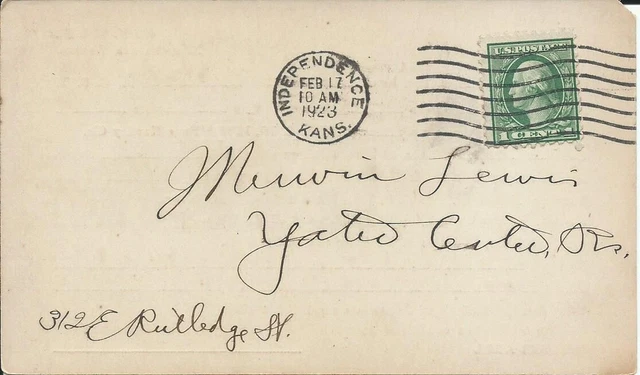 INDEPENDENCE
FEB 17
10 AM
1923
KANS.
U.S. POSTAGE
1 CENT 1
Merwin Lewis
Yates Center, Ks.
312 E Rutledge St.